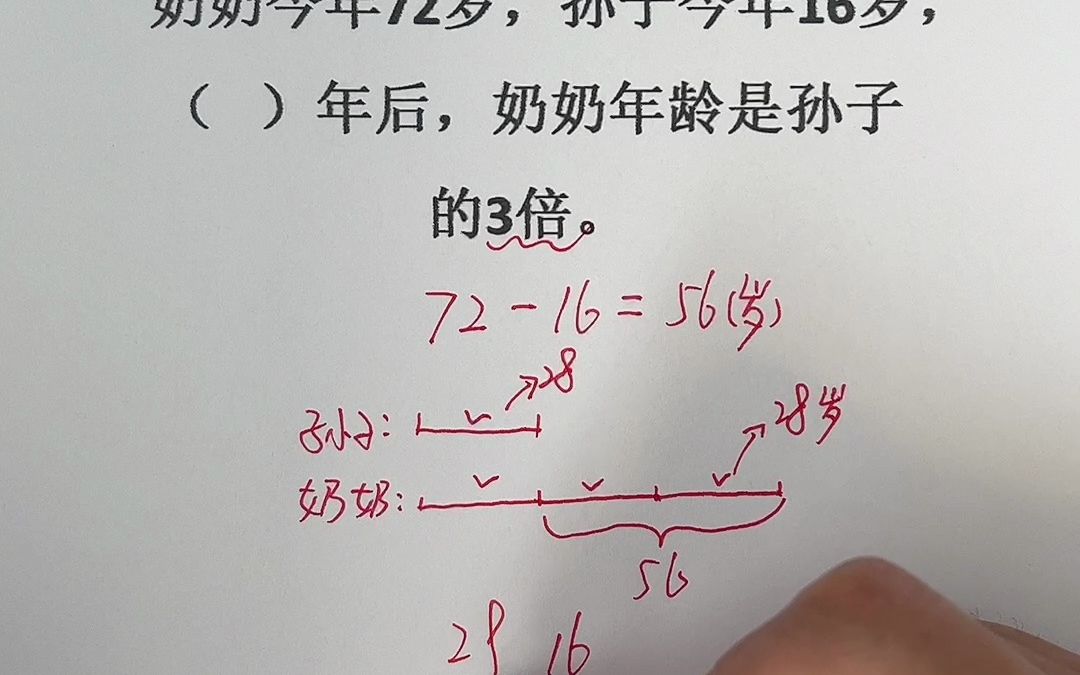 奶奶今年72岁，孙子今年16岁，
（ ）年后，奶奶年龄是孙子
的3倍。
72-16=56(岁)
28
孙子：
28岁
奶奶：
56
28 16